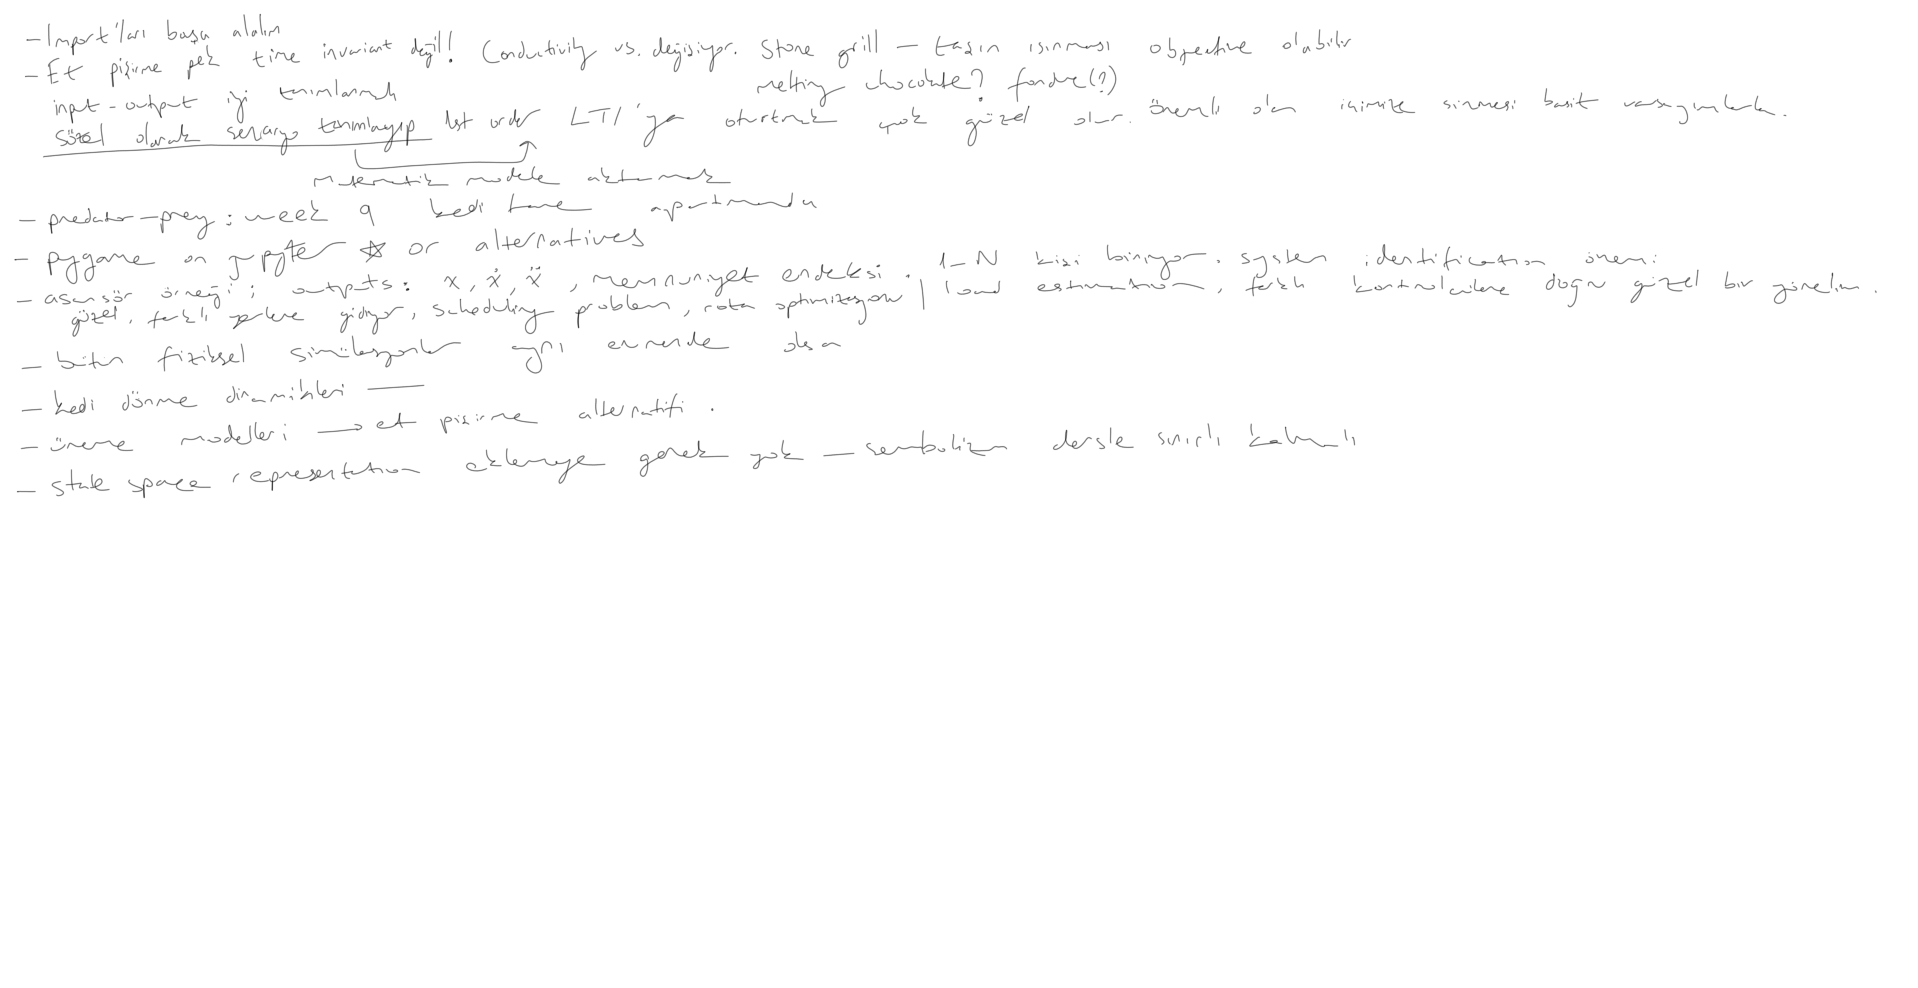 - Import'ları başa alalım
- Et pişirme pek time invariant değil! Conductivity vs. değişiyor. Stone grill - taşın ısınması objective olabilir
melting chocolate? fondue(?)
input-output iyi tanımlanmalı
sözel olarak senaryo tanımlayıp 1st order LTI'ya oturtmak çok güzel olur. önemli olan içimize sinmesi basit varsayımlarla.
Matematik modele aktarmak
- predator-prey : week 9 kedi fare apartmanda
- pygame on jupyter ☆ or alternatives
- asansör örneği ; outputs: x, ẋ, ẍ , memnuniyet endeksi . 1-N kişi biniyor. system identification önemi
güzel. farklı yerlere gidiyor, scheduling problem, rota optimizasyon | load estimation, farklı kontrolcülere doğru güzel bir yönelim.
- bütün fiziksel simülasyonlar aynı evrende olsa
- kedi dönme dinamikleri —
- üreme modelleri → et pişirme alternatifi .
- state space representation eklemeye gerek yok - sembolizm dersle sınırlı kalmalı